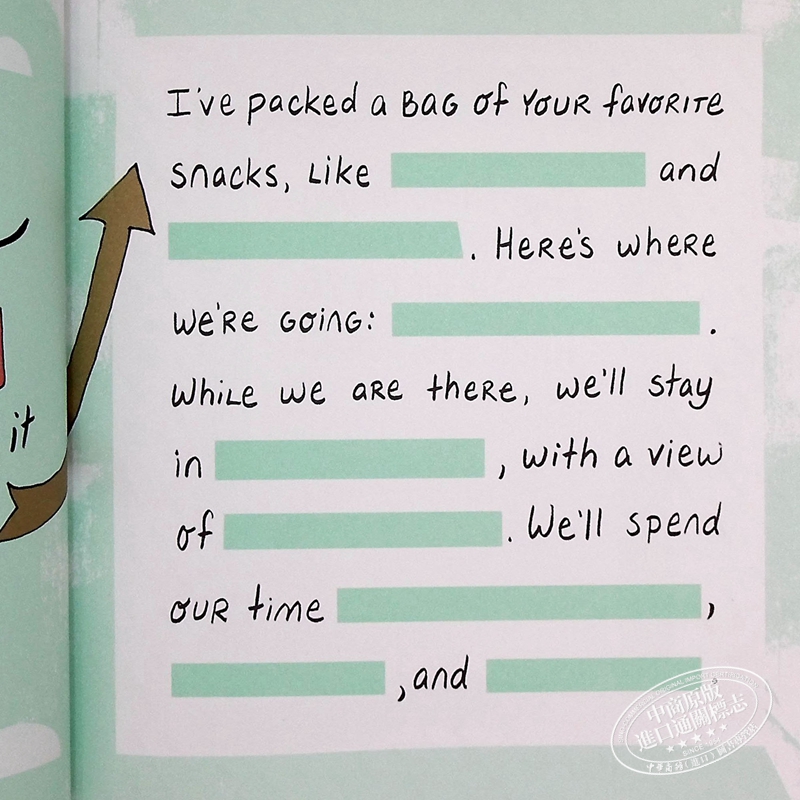 I've packed a BAG of YOUR favorite
snacks, like and
. Here's where
we're going: .
While we are there, we'll stay
in , with a view
of . We'll spend
our time ,
, and
it
中商原版
進口通關標志